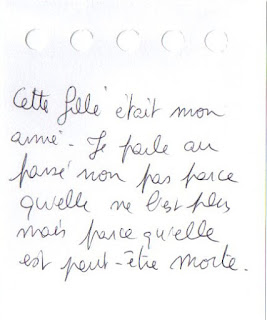 Cette fille était mon
amie. Je parle au
passé non pas parce
qu'elle ne l'est plus
mais parce qu'elle
est peut-être morte.